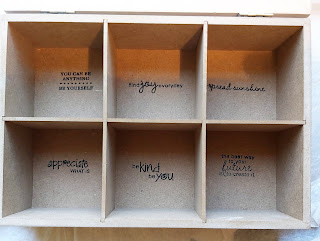 YOU CAN BE
ANYTHING
BE YOURSELF
find joy everyday
spread sunshine
appreciate
WHAT IS
be kind
to you
the best way
to
your
future
is to create it